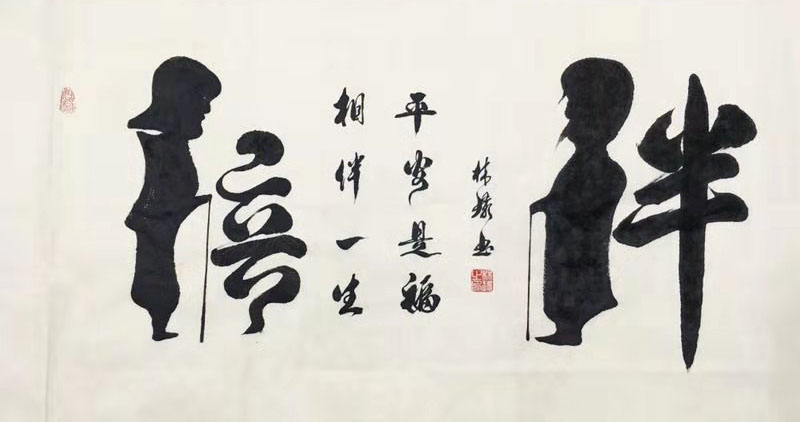 陪伴
相伴一生
平安是福
林 书